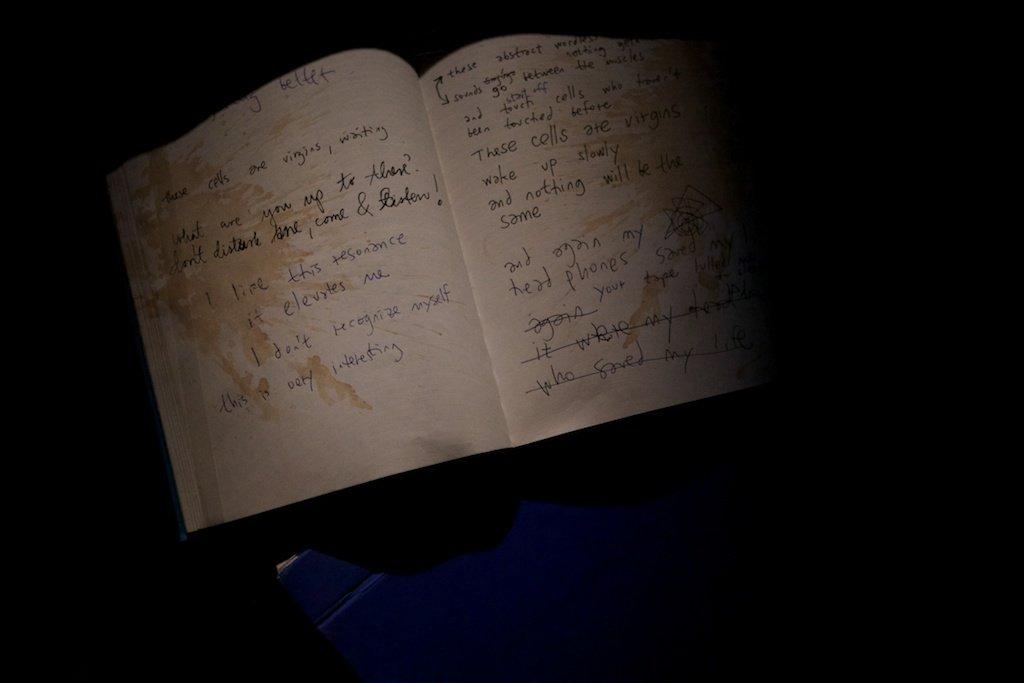 better
these cells are virgins, waiting
what are you up to there?
don't disturb me, come & listen!
I like this resonance
it elevates me
I don't recognize myself
this is very interesting
these abstract wordless
sounds go between the muscles
and touch cells who haven't
been touched before
These cells are virgins
wake up slowly
and nothing will be the
same
and again my
head phones saved my
again your tape
it where my
who saved my life